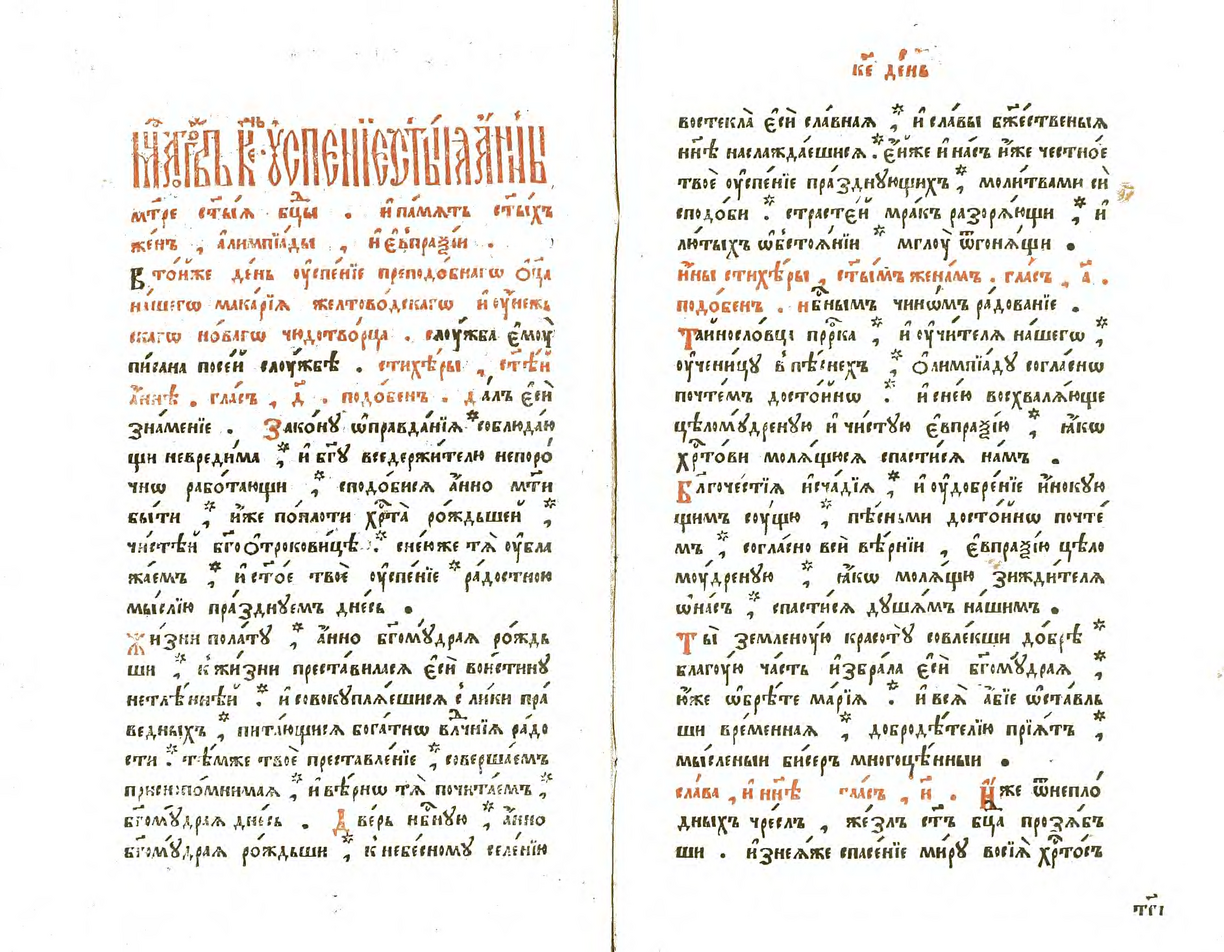 мц҃а тогѡ́жъ в҃ъ к҃е днь ᲂу҆спе́нїе ст҃ы́ѧ а҆́нны
мт҃ре ст҃ы́ѧ бц҃ы . и҆ па́мѧть ст҃ы́хъ
же́нъ , а҆лимпїа́ды , и҆ є҆ѵпра́ѯїи .
В то́йже де́нь ᲂу҆спе́нїе преподо́бнагѡ ѻ҆ц҃а̀
на́шегѡ мака́рїѧ желтово́дскагѡ и҆ ᲂу҆́нежь
скагѡ но́вагѡ чюдотво́рца . слꙋ́жба є҆мꙋ̀
пи́сана посе́й слꙋ́жбѣ . стихѣ́ры , ст҃ѣ́й
а҆́ннѣ . гла́съ , д҃ . подо́бенъ . да́лъ є҆сѝ
зна́менїе . Зако́нꙋ ѡ҆правда́нїѧ * соблюда́ю
щи невреди́ма , * и҆ бг҃ꙋ вседержи́телю непоро́
чнѡ рабо́тающи , * сподо́бисѧ а҆́нно мт҃и
бы́ти , * и҆́же попло́ти хрⷭ҇та̀ ро́ждьшей , *
чи́стѣй бг҃оѻтрокови́цѣ . * сне́юже тѧ̀ ᲂу҆бла
жа́емъ , * и҆ ст҃о́е твоѐ ᲂу҆спе́нїе * ра́достною
мы́слїю пра́зднꙋемъ дне́сь .
Жи́зни пола́тꙋ , * а҆́нно бг҃омꙋ́драѧ ро́ждь
ши , * к жи́зни преста́виласѧ є҆сѝ вои́стинꙋ
нетлѣ́ннѣй . * и҆ совокꙋплѧ́ешисѧ с ли́ки пра́
ведныхъ , * пита́ющисѧ бога́тнѡ влⷣчнїѧ ра́до
сти . * тѣ́мже твоѐ преставле́нїе , * соверша́емъ
приснопо́мнимаѧ , * и҆ вѣ́рнѡ тѧ̀ почита́емъ , *
бг҃омꙋ́драѧ дне́сь . Две́рь нбⷭ҇нꙋю , * а҆́нно
бг҃омꙋ́драѧ ро́ждьши , * к небе́сномꙋ селе́нїю
к҃е де́нь
востекла̀ є҆сѝ сла́внаѧ , * и҆ сла́вы бж҃е́ственыѧ
нн҃ѣ наслажда́ешисѧ . * є҆́йже и҆ на́съ и҆́же честно́е
твоѐ ᲂу҆спе́нїе пра́зднꙋющихъ , * моли́твами сѝ
сподо́би . * страсте́й мра́къ разорѧ́ющи , * и҆
лю́тыхъ ѡ҆бстоѧ́нїи * мглꙋ̀ ѿгонѧ́щи .
и҆́ны стихѣ́ры , ст҃ы́мъ жена́мъ . гла́съ , а҃ .
подо́бенъ . нбⷭ҇нымъ чинѡ́мъ ра́дованїе .
Тайносло́вца прⷪ҇ро́ка , * и҆ ᲂу҆чи́телѧ на́шегѡ , *
ᲂу҆чени́цꙋ в пѣ́снехъ , * ѻ҆лимпїа́дꙋ согла́снѡ
почте́мъ досто́йнѡ . * и҆ сне́ю восхвалѧ́юще
цѣломꙋ́дренꙋю и҆ чи́стꙋю є҆ѵпра́ѯїю , * ꙗ҆́кѡ
хрⷭ҇то́ви молѧ́щюсѧ спасти́сѧ на́мъ .
Благоче́стїѧ и҆сча́дїѧ , * и҆ ᲂу҆добре́нїе и҆́нокꙋю
щимъ сꙋ́щю , * пѣ́сньми досто́йнѡ почте́
мъ , * согла́сно всѝ вѣ́рнїи , є҆ѵпра́ѯїю цѣло
мꙋ́дренꙋю , * ꙗ҆́кѡ молѧ́щю зижди́телѧ
ѡ҆на́съ , * спасти́сѧ дꙋша́мъ на́шимъ .
Ты̀ земленꙋ́ю красотꙋ̀ совле́кши до́брѣ *
благꙋ́ю ча́сть и҆збра́ла є҆сѝ бг҃омꙋ́драѧ , *
ю҆́же ѡ҆брѣ́те марі́ѧ . * и҆ всѧ̀ а҆́бїе ѡ҆ста́вль
ши вре́меннаѧ , * добродѣ́телїю прїѧ́тъ , *
мы́сленыи би́серъ многоцѣ́нныи .
сла́ва , и҆ нн҃ѣ гла́съ , и҃ . И҆́же ѿнепло́
дныхъ чре́слъ , же́злъ ст҃ъ бц҃а прозѧ́бъ
ши . и҆знеѧ́же спасе́нїе ми́рꙋ восїѧ̀ хрⷭ҇то́съ
тг҃і